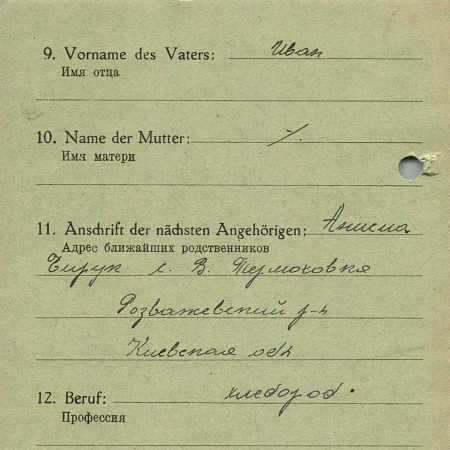 9. Vorname des Vaters: Иван
Имя отца
10. Name der Mutter: ⁒
Имя матери
11. Anschrift der nächsten Angehörigen: Анисия
Адрес ближайших родственников
Бирук с. В. Термоховка
Розважевский р-н
Киевская обл
12. Beruf: хлебороб.
Профессия